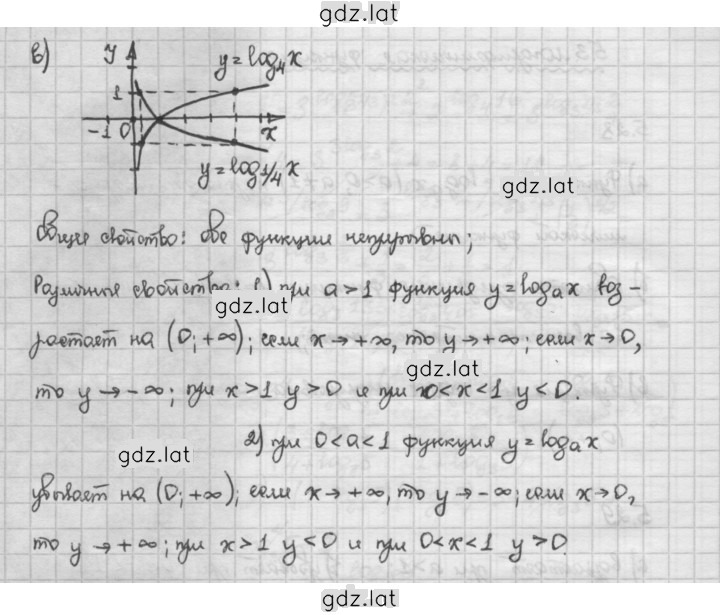 gdz.lat
в)
y
y = log₄x
1
-1 0 x
y = log1/4 x
gdz.lat
Общее свойство: обе функции непрерывны;
Различные свойства: 1) при a > 1 функция y = logₐx воз-
gdz.lat
растает на (0; +∞); если x → +∞, то y → +∞; если x → 0,
gdz.lat
то y → -∞; при x > 1 y > 0 и при 0 < x < 1 y < 0.
2) при 0 < a < 1 функция y = logₐx
gdz.lat
убывает на (0; +∞); если x → +∞, то y → -∞; если x → 0,
то y → +∞; при x > 1 y < 0 и при 0 < x < 1 y > 0.
gdz.lat